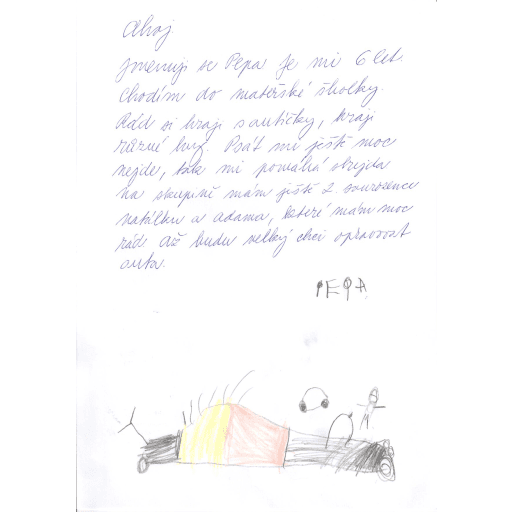 Ahoj
Jmenuji se Pepa je mi 6 let.
Chodím do mateřské školky.
Rád si hraji s autíčky, hraji
různé hry. Psát mi ještě moc
nejde, tak mi pomáhá
na skupině mám ještě 2. sourozence
natálku a adama, které mám moc
rád. Až budu velký chci opravovat
auta.
PEPA